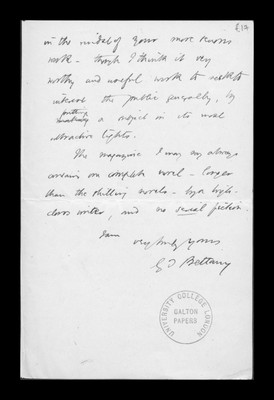 £17
in the midst of your more serious
work – though I think it very
worthy and useful work to seek to
interest the public generally, by
putting
a subject in its most
attractive lights.
The magazine I may say always
contains one complete novel – longer
than the shilling novels – by a high-
class writer, and no serial fiction.
I am
very truly yours
G T Bettany
UNIVERSITY COLLEGE LONDON
GALTON
PAPERS